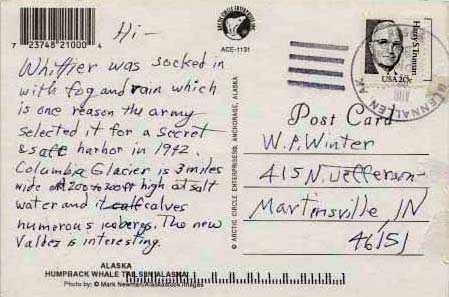 7 23748 21000 4
ARCTIC CIRCLE ENTERPRISES, INC.
ACE-1131
Hi -
Whittier was socked in
with fog and rain which
is one reason the army
selected it for a secret
& safe harbor in 1942.
Columbia Glacier is 3 miles
wide at 200 to 300 ft high at salt
water and it calf calves
numerous icebergs. The new
Valdez is interesting.
ALASKA
HUMPBACK WHALE TAILS IN ALASKA
Photo by: © Mark Newman/Alaskastock Images
© ARCTIC CIRCLE ENTERPRISES®, ANCHORAGE, ALASKA
Harry S. Truman
USA 20c
GLENNALLEN AK
Post Card
W.P. Winter
415 N. Jefferson
Martinsville, IN
46151